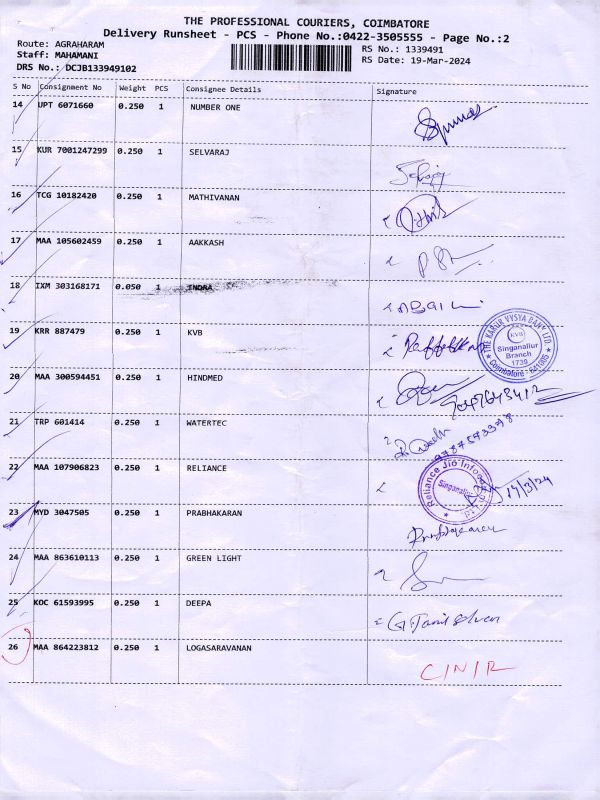 THE PROFESSIONAL COURIERS, COIMBATORE
Delivery Runsheet - PCS - Phone No.:0422-3505555 - Page No.:2
Route: AGRAHARAM
Staff: MAHAMANI
DRS No.: DCJB133949102
RS No.: 1339491
RS Date: 19-Mar-2024
S No Consignment No Weight PCS Consignee Details Signature
14 UPT 6071660 0.250 1 NUMBER ONE
15 KUR 7001247299 0.250 1 SELVARAJ
16 TCG 10182420 0.250 1 MATHIVANAN
17 MAA 105602459 0.250 1 AAKKASH
18 IXM 303168171 0.050 1 INDRA
19 KRR 887479 0.250 1 KVB
THE KARUR VYSYA BANK LTD.
KVB
Singanallur
Branch
1739
Coimbatore - 641005
20 MAA 300594451 0.250 1 HINDMED
21 TRP 601414 0.250 1 WATERTEC
9787593398
22 MAA 107906823 0.250 1 RELIANCE
Reliance Jio
Singanallur
23 MYD 3047505 0.250 1 PRABHAKARAN
Prabhakaran
24 MAA 863610113 0.250 1 GREEN LIGHT
25 KOC 61593995 0.250 1 DEEPA
G. Tamil Selvan
26 MAA 864223812 0.250 1 LOGASARAVANAN
C/N/R